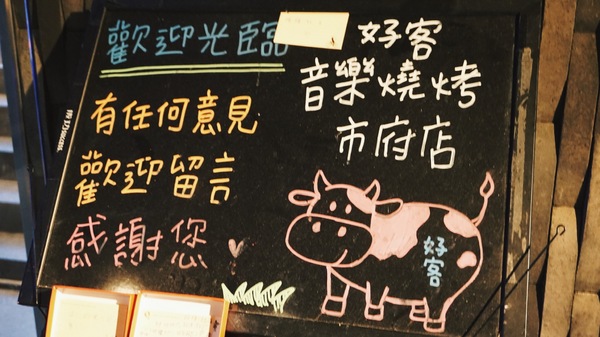 歡迎光臨
有任何意見
歡迎留言
感謝您
好客
音樂燒烤
市府店
好客